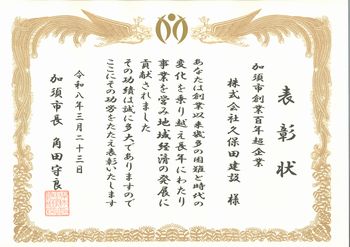 表彰状
加須市創業百年超企業
株式会社久保田建設 様
あなたは創業以来幾多の困難と時代の
変化を乗り越え長年にわたり
事業を営み地域経済の発展に
貢献されました
その功績は誠に多大でありますので
ここにその功労をたたえ表彰いたします
令和八年三月二十三日
加須市長 角田守良